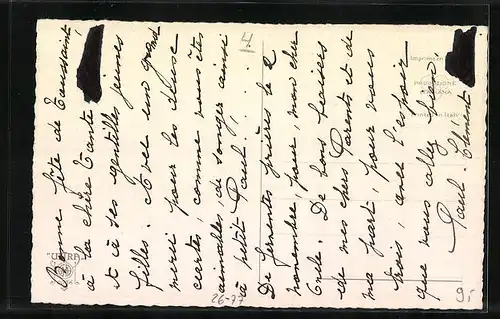 Bonne fête de Toussaint
à la chère Tante
et à ses gentilles jeunes
filles. Avec un grand
merci pour les deux
cartes, comme vous êtes
aimables, de songer ainsi
à petit Paul.....
De ferventes prières le 2
novembre, pour mon cher
Oncle. De bons baisers
de mes chers Parents et de
ma part, pour vous
trois, avec l'espoir
que vous allez bien!
Paul-Clément
4
26-77
9,-